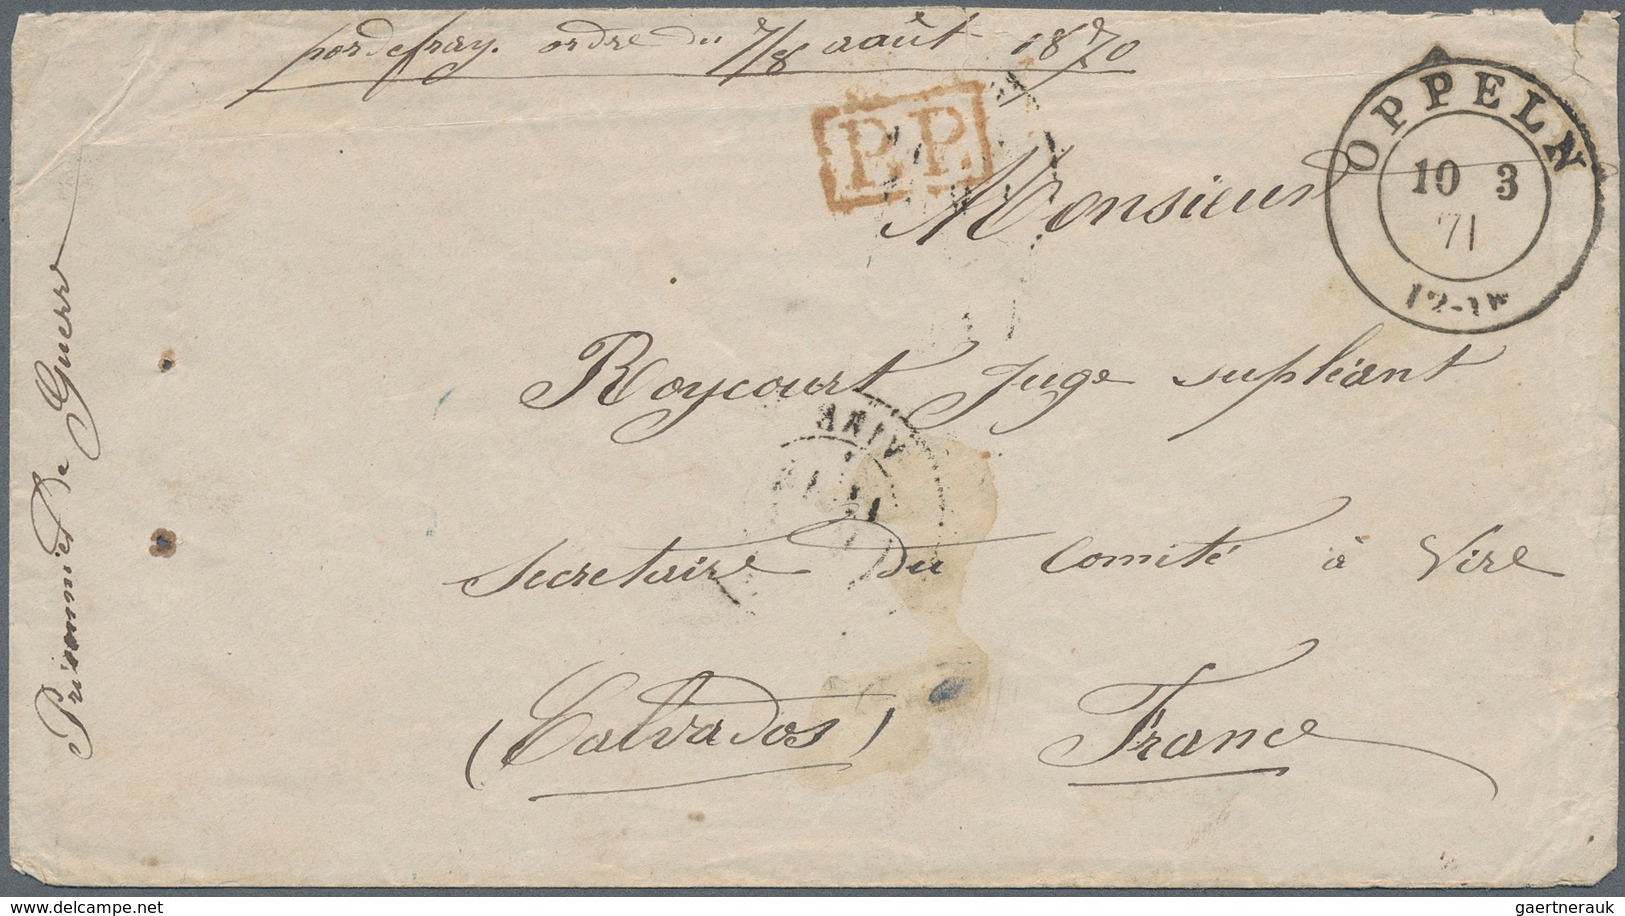 pordefray. ordre du 7/8 août 1870
P.P.
OPPELN
10 3
71
12-1N
Monsieur
Roycourt juge supléant
Secretaire du Comité à Vire
(Calvados) France
Prisonnier De Guerr
gaertnerauk